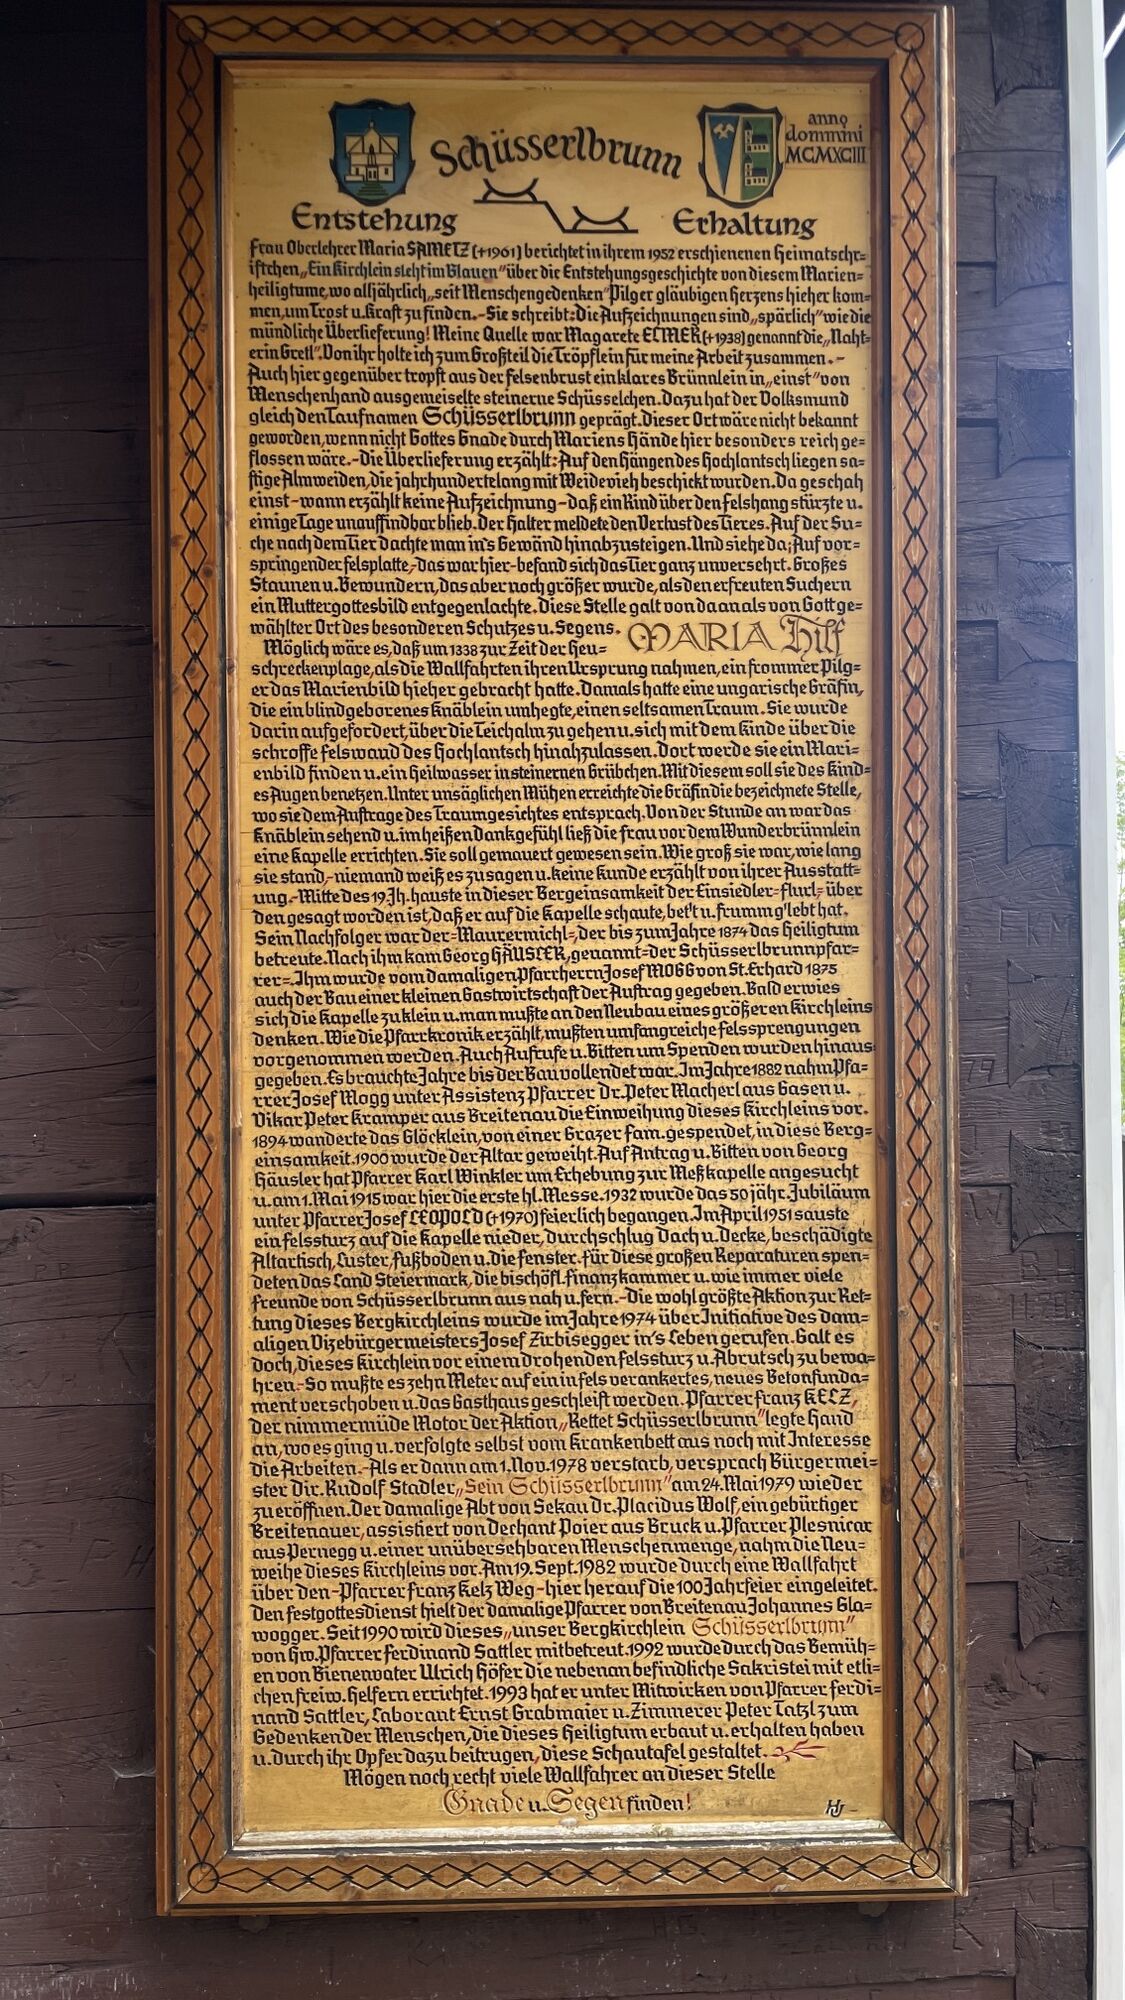 Schüsserlbrunn
anno
dommini
MCMXCIII
Entstehung
Erhaltung
Frau Oberlehrer Maria SAMETZ (+1961) berichtet in ihrem 1952 erschienenen Heimatschr=
iftchen „Ein Kirchlein steht im Blauen" über die Entstehungsgeschichte von diesem Marien=
heiligtume, wo alljährlich „seit Menschengedenken" Pilger gläubigen Herzens hieher kom=
men, um Trost u. Kraft zu finden.-Sie schreibt: Die Aufzeichnungen sind „spärlich" wie die
mündliche Überlieferung! Meine Quelle war Magarete ELMER (+1938) genannt die „Naht=
erin Gretl". Von ihr holte ich zum Großteil die Tröpflein für meine Arbeit zusammen.-
Auch hier gegenüber tropft aus der Felsenbrust ein klares Brünnlein in „einst" von
Menschenhand ausgemeiselte steinerne Schüsselchen. Dazu hat der Volksmund
gleich den Taufnamen Schüsserlbrunn geprägt. Dieser Ort wäre nicht bekannt
geworden, wenn nicht Gottes Gnade durch Mariens Hände hier besonders reich ge=
flossen wäre.-Die Überlieferung erzählt: Auf den Hängen des Hochlantsch liegen sa=
ftige Almweiden, die jahrhundertelang mit Weidevieh beschickt wurden. Da geschah
einst-wann erzählt keine Aufzeichnung-daß ein Rind über den Felshang stürzte u.
einige Tage unauffindbar blieb. Der Halter meldete den Verlust des Tieres. Auf der Su=
che nach dem Tier dachte man in's Gewänd hinabzusteigen. Und siehe da; Auf vor=
springender Felsplatte,-das war hier-befand sich das Tier ganz unversehrt. Großes
Staunen u. Bewundern, das aber noch größer wurde, als den erfreuten Suchern
ein Muttergottesbild entgegenlachte. Diese Stelle galt von da an als von Gott ge=
wählter Ort des besonderen Schutzes u. Segens. MARIA Hilf
Möglich wäre es, daß um 1338 zur Zeit der Heu=
schreckenplage, als die Wallfahrten ihren Ursprung nahmen, ein frommer Pilg=
er das Marienbild hieher gebracht hatte. Damals hatte eine ungarische Gräfin,
die ein blindgeborenes Knäblein umhegte, einen seltsamen Traum. Sie wurde
darin aufgefordert, über die Teichalm zu gehen u. sich mit dem Kinde über die
schroffe Felswand des Hochlantsch hinabzulassen. Dort werde sie ein Mari=
enbild finden u. ein Heilwasser in steinernen Grübchen. Mit diesem soll sie des Kind=
es Augen benetzen. Unter unsäglichen Mühen erreichte die Gräfin die bezeichnete Stelle,
wo sie dem Auftrage des Traumgesichtes entsprach. Von der Stunde an war das
Knäblein sehend u. im heißen Dankgefühl ließ die Frau vor dem Wunderbrünnlein
eine Kapelle errichten. Sie soll gemauert gewesen sein. Wie groß sie war, wie lang
sie stand,-niemand weiß es zu sagen u. keine Kunde erzählt von ihrer Ausstatt=
ung.-Mitte des 19. Jh. hauste in dieser Bergeinsamkeit der Einsiedler=Flurl= über
den gesagt worden ist, daß er auf die Kapelle schaute, bet't u. frumm g'lebt hat.
Sein Nachfolger war der=Maurermichl=, der bis zum Jahre 1874 das Heiligtum
betreute. Nach ihm kam Georg HÄUSLER, genannt=der Schüsserlbrunnpfar=
rer=. Ihm wurde vom damaligen Pfarrherrn Josef MOGG von St. Erhard 1875
auch der Bau einer kleinen Gastwirtschaft der Auftrag gegeben. Bald erwies
sich die Kapelle zu klein u. man mußte an den Neubau eines größeren Kirchleins
denken. Wie die Pfarrkronik erzählt, mußten umfangreiche Felssprengungen
vorgenommen werden. Auch Aufrufe u. Bitten um Spenden wurden hinaus=
gegeben. Es brauchte Jahre bis der Bau vollendet war. Im Jahre 1882 nahm Pfa=
rrer Josef Mogg unter Assistenz Pfarrer Dr. Peter Macherl aus Gasen u.
Vikar Peter Kramper aus Breitenau die Einweihung dieses Kirchleins vor.
1894 wanderte das Glöcklein, von einer Grazer Fam. gespendet, in diese Berg=
einsamkeit. 1900 wurde der Altar geweiht. Auf Antrag u. Bitten von Georg
Häusler hat Pfarrer Karl Winkler um Erhebung zur Meßkapelle angesucht
u. am 1. Mai 1915 war hier die erste hl. Messe. 1932 wurde das 50 jähr. Jubiläum
unter Pfarrer Josef LEOPOLD (+1970) feierlich begangen. Im April 1951 sauste
ein Felssturz auf die Kapelle nieder, durchschlug Dach u. Decke, beschädigte
Altartisch, Luster, Fußboden u. die Fenster. Für diese großen Reparaturen spen=
deten das Land Steiermark, die bischöfl. Finanzkammer u. wie immer viele
Freunde von Schüsserlbrunn aus nah u. fern.-Die wohl größte Aktion zur Ret=
tung dieses Bergkirchleins wurde im Jahre 1974 über Initiative des dam=
aligen Vizebürgermeisters Josef Zirbisegger in's Leben gerufen. Galt es
doch, dieses Kirchlein vor einem drohenden Felssturz u. Abrutsch zu bewa=
hren.-So mußte es zehn Meter auf ein in Fels verankertes, neues Betonfunda=
ment verschoben u. das Gasthaus geschleift werden. Pfarrer Franz KELZ,
der nimmermüde Motor der Aktion „Rettet Schüsserlbrunn" legte Hand
an, wo es ging u. verfolgte selbst vom Krankenbett aus noch mit Interesse
die Arbeiten.-Als er dann am 1. Nov. 1978 verstarb, versprach Bürgermei=
ster Dir. Rudolf Stadler „Sein Schüsserlbrunn" am 24. Mai 1979 wieder
zu eröffnen. Der damalige Abt von Sekau Dr. Placidus Wolf, ein gebürtiger
Breitenauer, assistiert von Dechant Poier aus Bruck u. Pfarrer Plesnicar
aus Pernegg u. einer unübersehbaren Menschenmenge, nahm die Neu=
weihe dieses Kirchleins vor. Am 19. Sept. 1982 wurde durch eine Wallfahrt
über den-Pfarrer Franz Kelz Weg-hier herauf die 100 Jahrfeier eingeleitet.
Den Festgottesdienst hielt der damalige Pfarrer von Breitenau Johannes Gla=
wogger. Seit 1990 wird dieses „unser Bergkirchlein Schüsserlbrunn"
von Hw. Pfarrer Ferdinand Sattler mitbetreut. 1992 wurde durch das Bemüh=
en von Bienenvater Ulrich Höfer die nebenan befindliche Sakristei mit etli=
chen freiw. Helfern errichtet. 1993 hat er unter Mitwirken von Pfarrer Ferdi=
nand Sattler, Laborant Ernst Grabmaier u. Zimmerer Peter Tatzl zum
Gedenken der Menschen, die dieses Heiligtum erbaut u. erhalten haben
u. durch ihr Opfer dazu beitrugen, diese Schautafel gestaltet.
Mögen noch recht viele Wallfahrer an dieser Stelle
Gnade u. Segen finden!